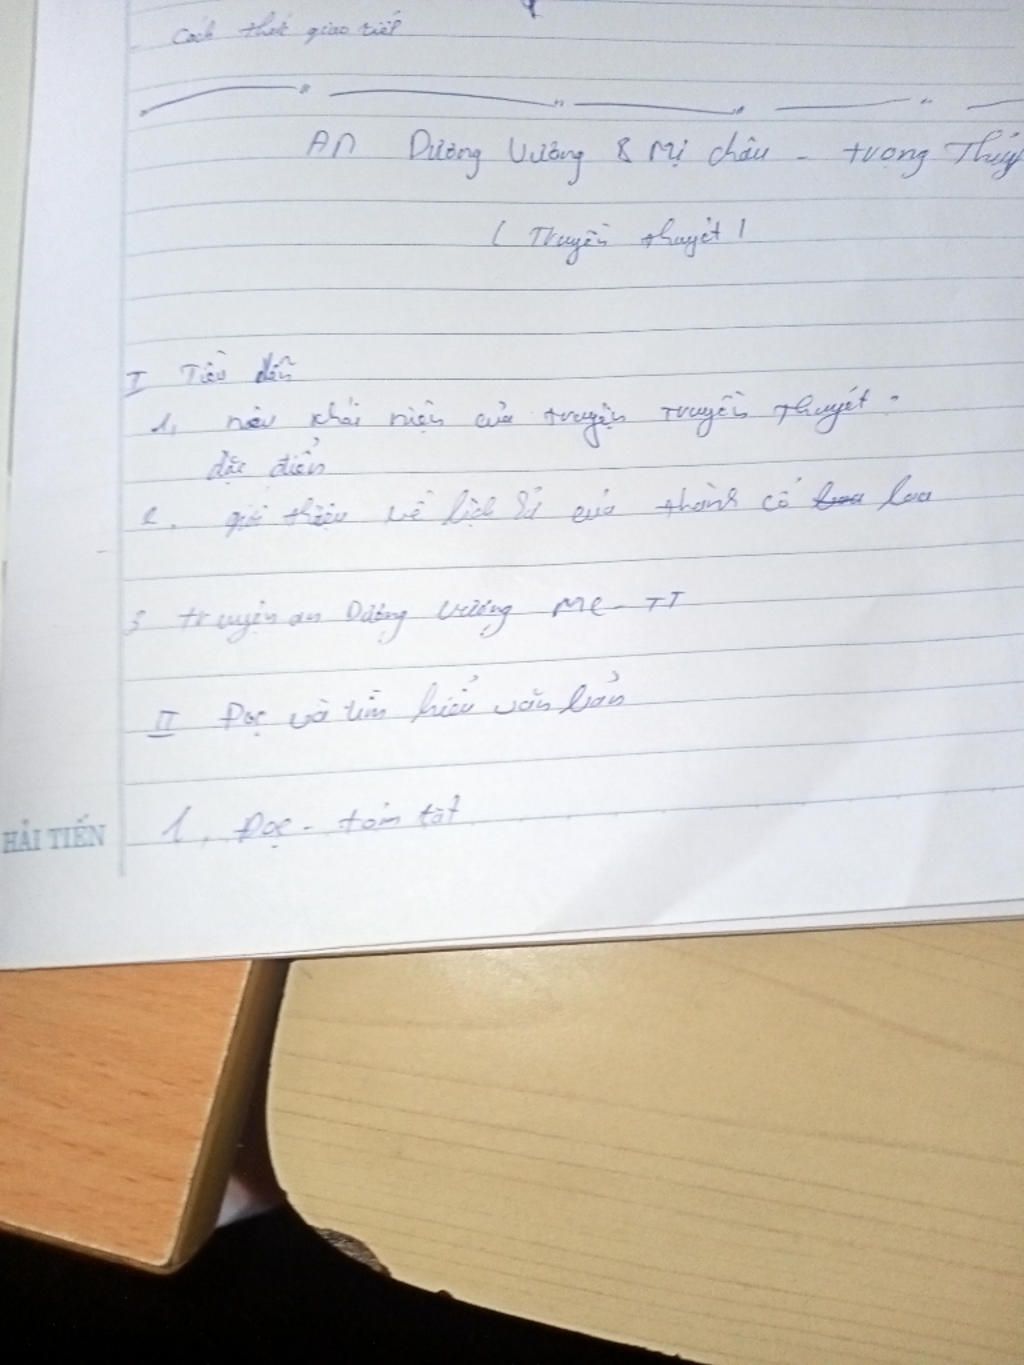 Cách thức giao tiếp
An Dương Vương & Mị châu - trọng Thủy
( Truyền thuyết )
I Tiểu dẫn
1, nêu khái niệm của truyện truyền thuyết -
đặc điểm
2, giới thiệu về lịch sử của thành cổ loa
3 truyện an Dương Vương MC - TT
II Đọc và tìm hiểu văn bản
1, Đọc - tóm tắt
HẢI TIẾN